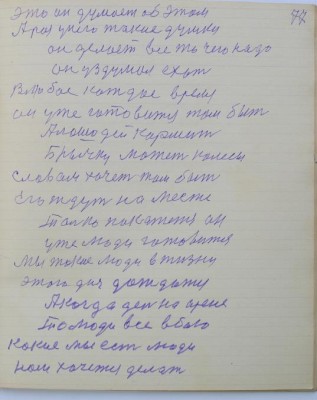 77
это он думает об этом
А раз у него такие думки
он делает все то чего надо
он уздумал ехат
В любое каждые время
он уже готовится там быт
А лошадей кармит
Бричку мажет колесы
Словам хочет там быт
Его ждут на месте
Толко покажется он
уже люди готовится
Мы такие люди в жизни
этого дня дождатся
А когда ден на арене
То люди все в бою
Какие мы ест люди
нам хочется делат